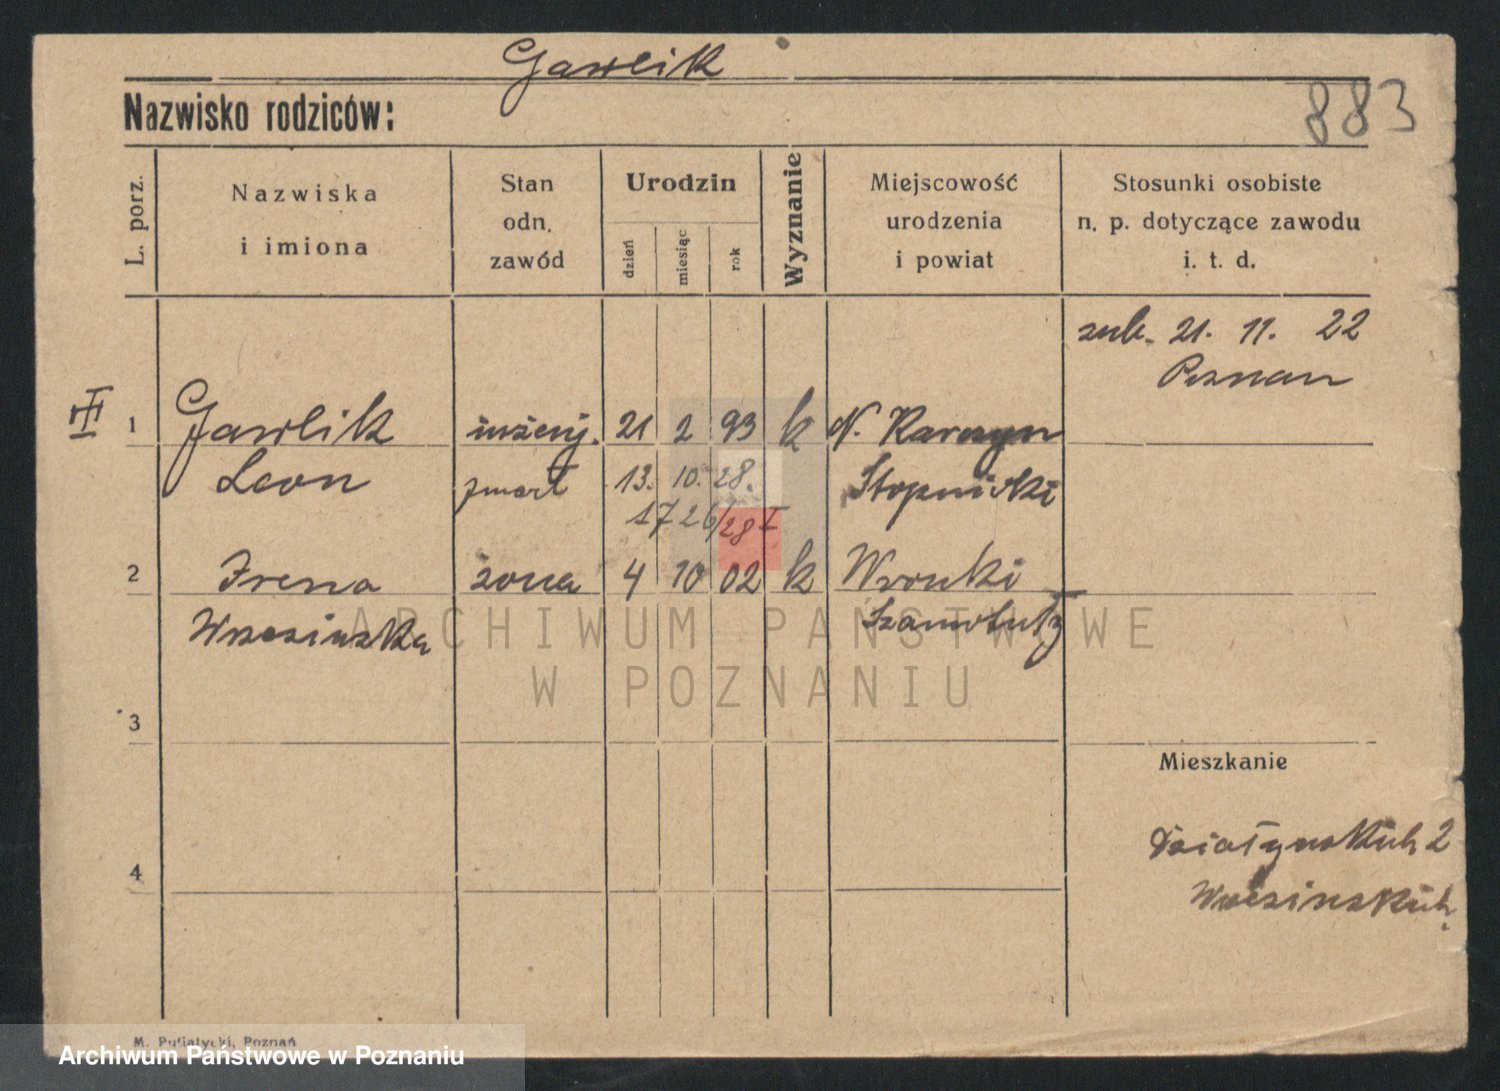 Gawlik
Nazwisko rodziców:
883
L. porz.
Nazwiska
i imiona
Stan
odn.
zawód
Urodzin
dzień
miesiąc
rok
Wyznanie
Miejscowość
urodzenia
i powiat
Stosunki osobiste
n. p. dotyczące zawodu
i. t. d.
21. 11. 22
Poznań
III
1 Gawlik inżenj. 21 2 93 k N. Karczyn
Leon zmarł 13. 10. 28. Stopnicki
17 26/28 I
2 Irena żona 4 10 02 k Wronki
Wrzesińska Szamotuły
ARCHIWUM PAŃSTWOWE
W POZNANIU
3
Mieszkanie
Działyńskich 2
4
Wrzesińskich
M. Putiatycki, Poznań
Archiwum Państwowe w Poznaniu